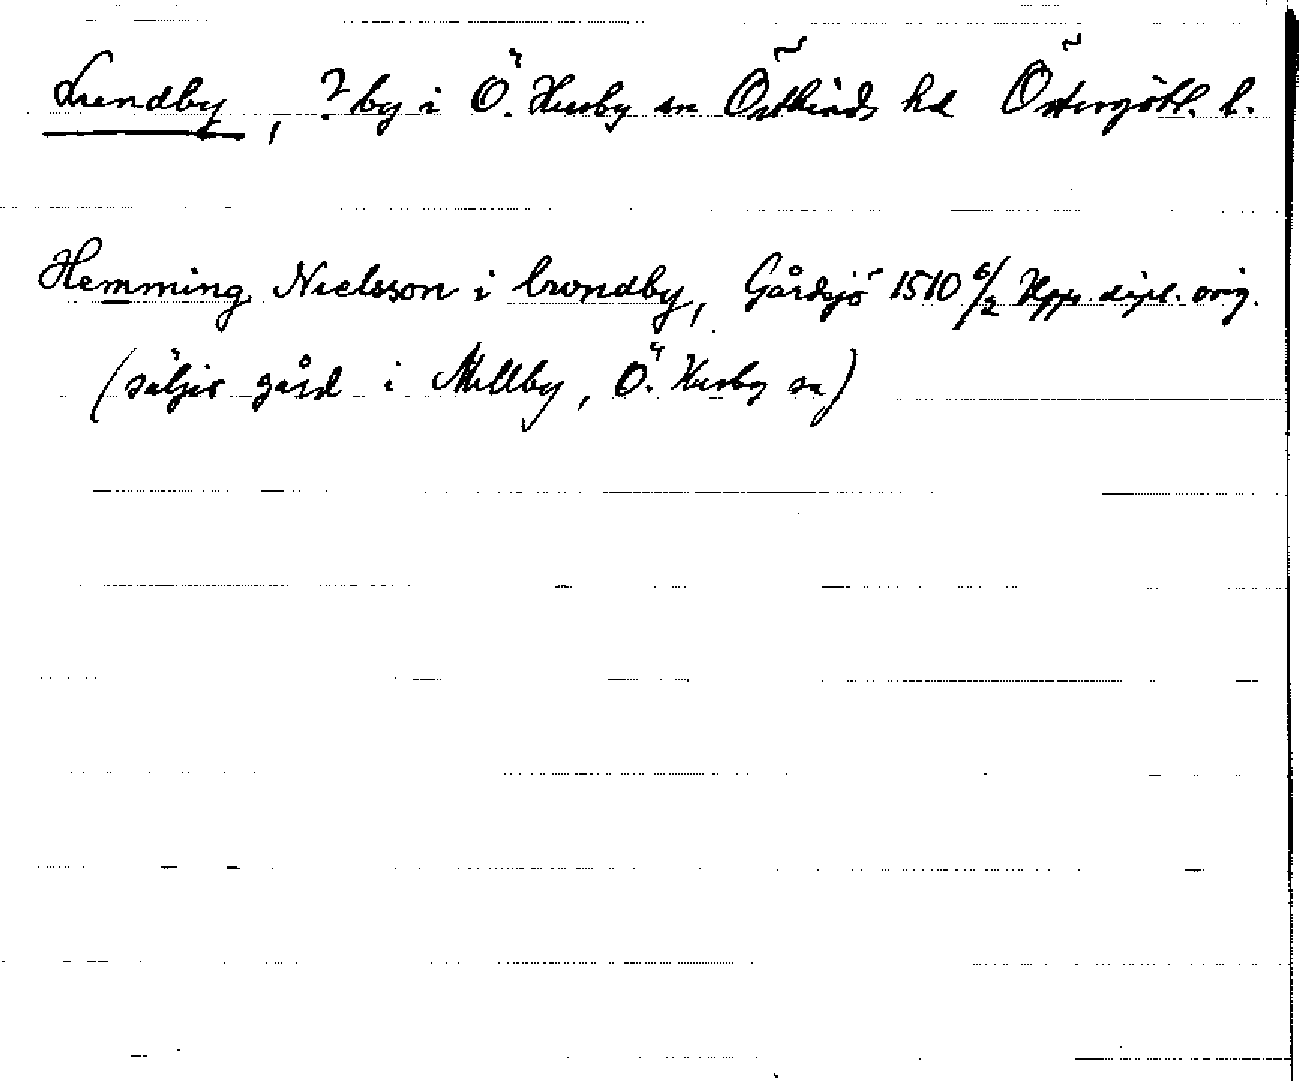 Lundby, ? by i Ö. Husby sn Östkinds hd Östergötl. l.
Hemming Nielsson i lwndby, Gårdsjö 1510 6/2 Upps dipl. orig.
(säljer gård i Mellby, Ö. Husby sn)